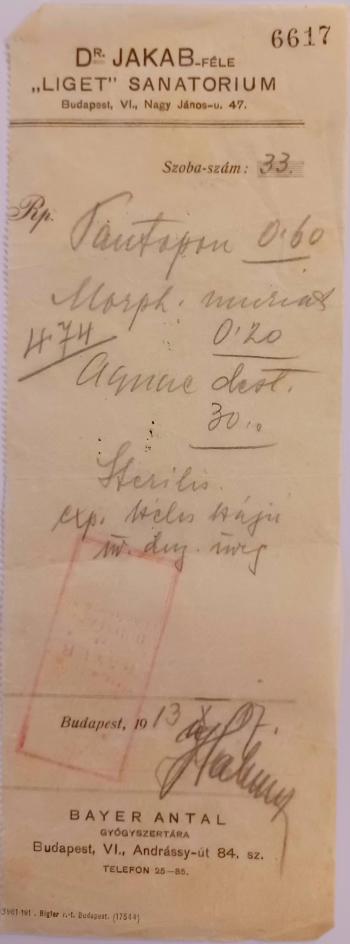 6617
DR. JAKAB-FÉLE
„LIGET” SANATORIUM
Budapest, VI., Nagy János-u. 47.
Szoba-szám: 33.
Rp.
Pantopon 0.60
Morph. muriat
0.20
4.74
Aquae dest.
30.
Sterilis.
exp.
üveg
Budapest, 1913 X 07.
BAYER ANTAL
GYÓGYSZERTÁRA
Budapest, VI., Andrássy-út 84. sz.
TELEFON 25—85.
Bigler r.-t. Budapest. (17544)